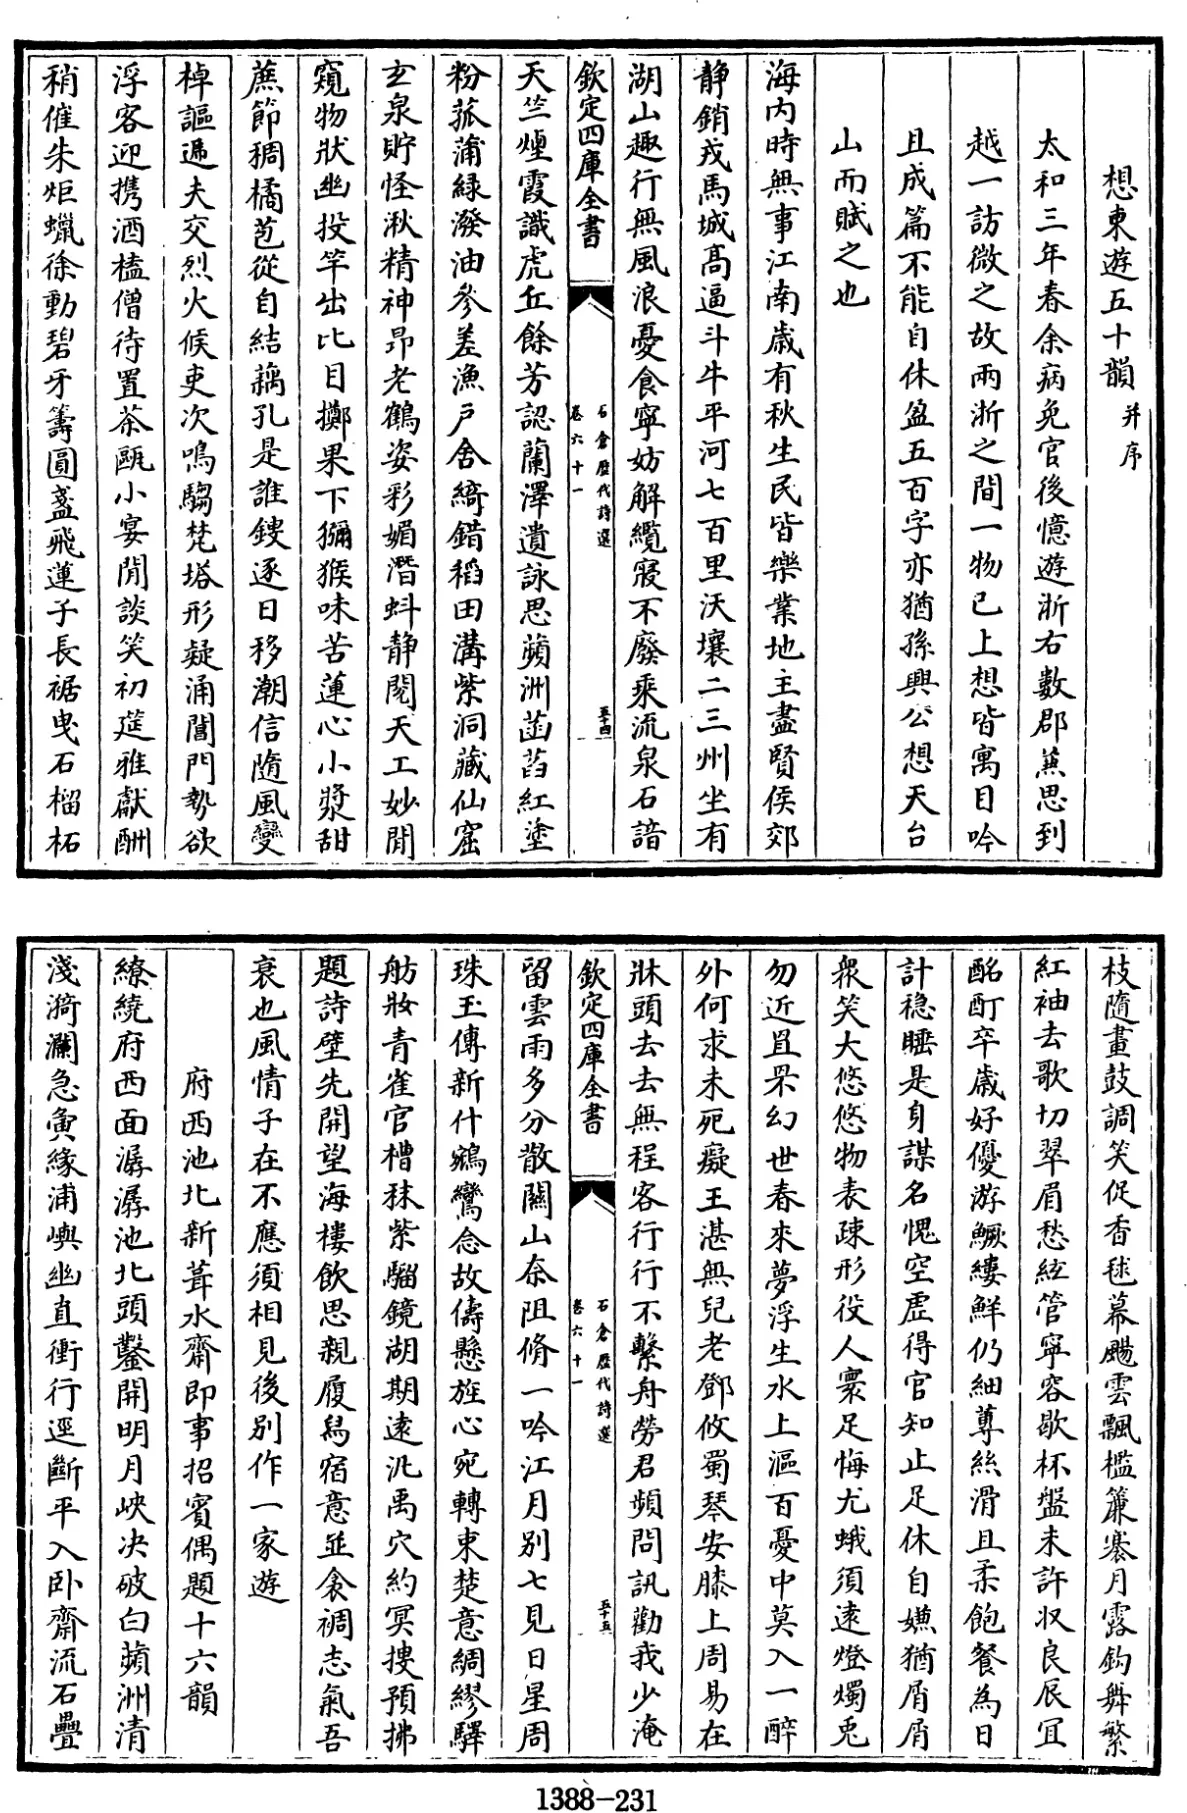 想東遊五十韻 并序
太和三年春余病免官後憶遊浙右數郡蕪思到
越一訪微之故兩浙之間一物已上想皆寓目吟
且成篇不能自休盈五百字亦猶孫興公想天台
山而賦之也
海内時無事江南歳有秋生民皆樂業地主盡賢侯郊
静銷戎馬城髙逼斗牛平河七百里沃壤二三州坐有
湖山趣行無風浪憂食寧妨解纜寢不廢乘流泉石諳
欽定四庫全書
石倉歴代詩選
卷六十一
五十四
天竺煙霞識虎丘餘芳認蘭澤遺詠思蘋洲菡萏紅塗
粉菰蒲緑潑油參差漁户舍綺錯稻田溝紫洞藏仙窟
玄泉貯怪湫精神昂老鶴姿彩媚潛虯静閲天工妙閒
窺物狀幽投竿出比目擲果下獼猴味苦蓮心小漿甜
蔗節稠橘苞從自結藕孔是誰鎪逐日移潮信隨風變
棹謳遞夫交烈火候吏次鳴騶梵塔形疑涌閶門勢欲
浮客迎携酒榼僧待置茶甌小宴閒談笑初筵雅獻酬
稍催朱炬蠟徐動碧牙籌圓盞飛蓮子長裾曳石榴柘
枝隨畫鼓調笑促香毬幕颺雲飄檻簾褰月露鈎舞繁
紅袖去歌切翠眉愁絃管寧容歇杯盤未許収良辰宜
酩酊卒歳好優游鱖縷鮮仍細蓴絲滑且柔飽餐為日
計穏睡是身謀名愧空虚得官知止足休自嫌猶屑屑
衆笑大悠悠物表疎形役人寰足悔尤蛾須逺燈燭兎
勿近罝罘幻世春來夢浮生水上漚百憂中莫入一醉
外何求未死癡王湛無兒老鄧攸蜀琴安膝上周易在
牀頭去去無程客行行不繫舟勞君頻問訊勸我少淹
欽定四庫全書
石倉歴代詩選
卷六十一
五十五
留雲雨多分散關山奈阻脩一吟江月别七見日星周
珠玉傳新什鵷鸞念故儔懸旌心宛轉東楚意綢繆驛
舫妝青雀官槽秣紫騮鏡湖期逺汎禹穴約冥搜預拂
題詩壁先開望海樓飲思親履舄宿意並衾裯志氣吾
衰也風情子在不應須相見後别作一家遊
府西池北新葺水齋即事招賓偶題十六韻
繚繞府西面潺潺池北頭鑿開明月峽决破白蘋洲清
淺漪瀾急夤緣浦嶼幽直衝行逕斷平入卧齋流石疊
1388-231